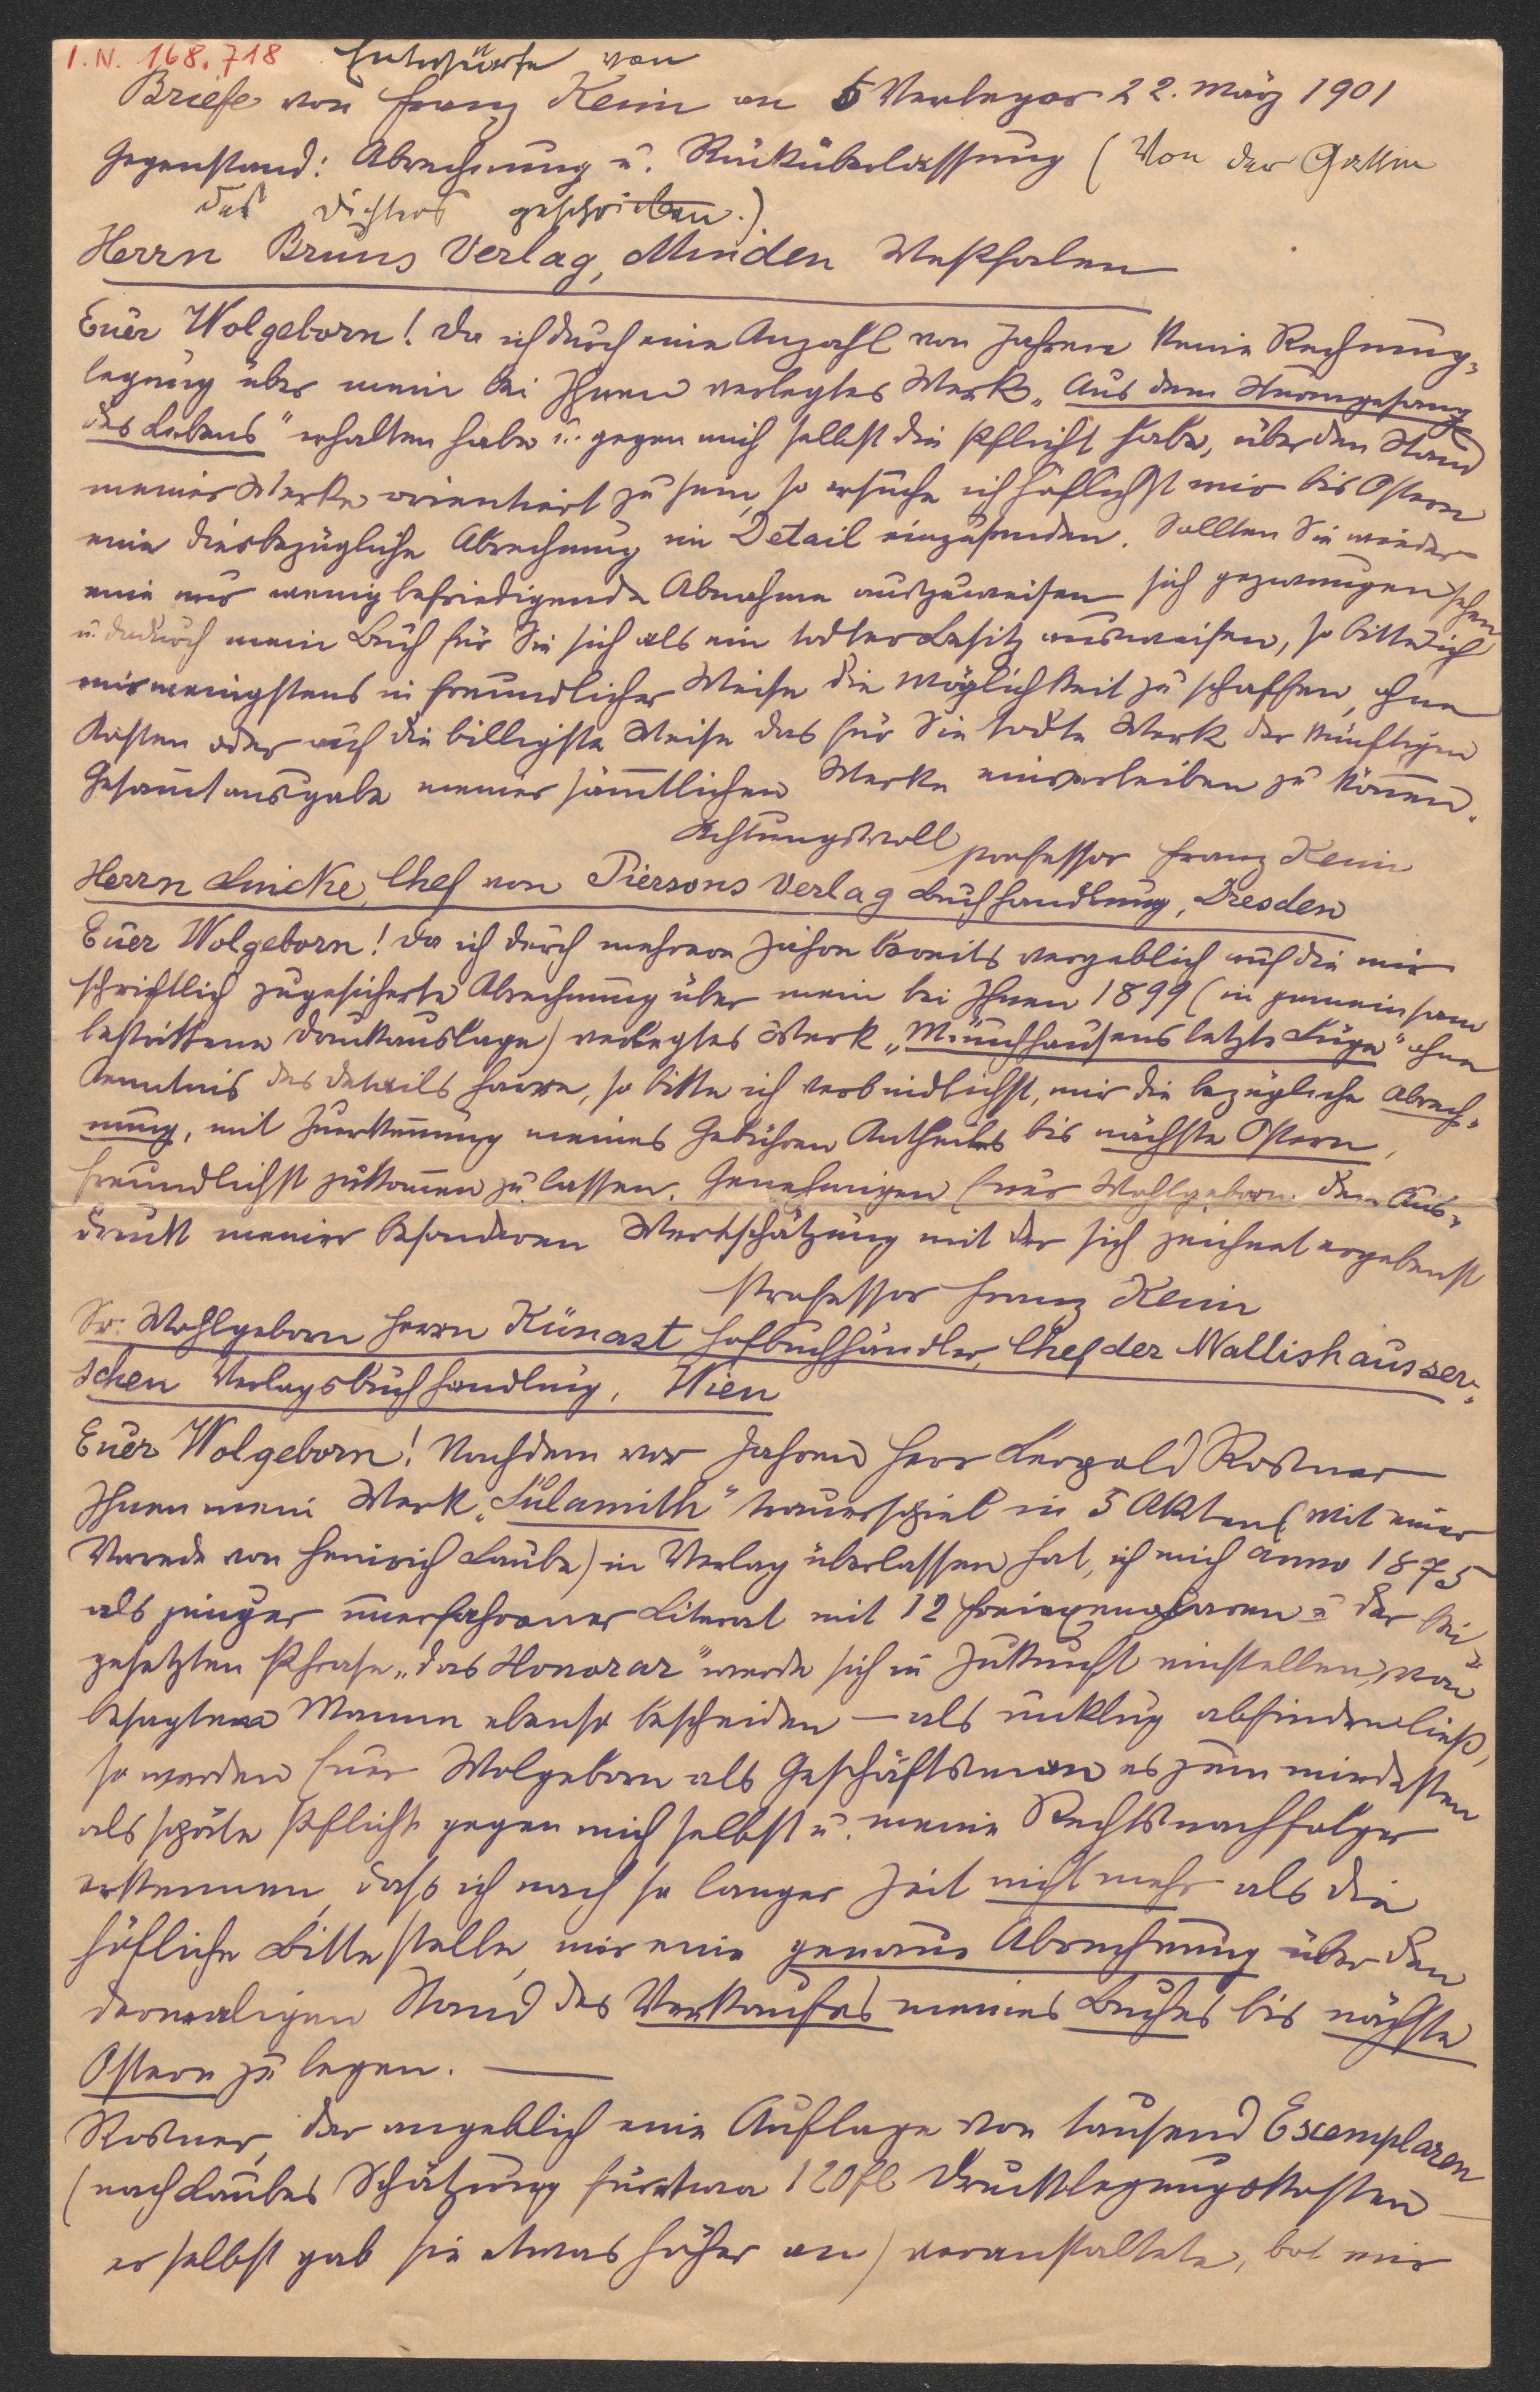 I. N. 168.718 Entwürfe von
Briefe von Franz Keim an 5 Verleger 22. März 1901
Gegenstand: Abrechnung u. Rücküberlassung (Von der Gattin
des Dichters geschrieben.)
Herrn Bruns Verlag, Minden Westfalen
Euer Wolgeborn! Da ich durch eine Anzahl von Jahren keine Rechnung-
legung über mein bei Ihnen verlegtes Werk „Aus dem Sturmgesang
des Lebens" erhalten habe u. gegen mich selbst die Pflicht habe, über den Stand
meiner Werke orientiert zu sein, so ersuche ich höflichst mir bis Ostern
eine diesbezügliche Abrechnung im Detail einzusenden. Sollten Sie wieder
eine nur wenig befriedigende Abnahme auszuweisen sich gezwungen sehen
u. dadurch mein Buch für Sie sich als ein todter Besitz ausweisen, so bitte ich
mir wenigstens in freundlicher Weise die Möglichkeit zu schaffen, ohne
Kosten oder auf die billigste Weise das für Sie todte Werk der künftigen
Gesamtausgabe meiner sämtlichen Werke einverleiben zu können.
Achtungsvoll Professor Franz Keim
Herrn Lincke, Chef von Piersons Verlag Buchhandlung, Dresden
Euer Wolgeborn! Da ich durch mehrere Jahre bereits vergeblich auf die mir
schriftlich zugesicherte Abrechnung über mein bei Ihnen 1899 (in gemeinsam
bestrittene Druckauslage) verlegtes Werk „Münchhausens letzte Lüge" ohne
Kenntnis des Details harre, so bitte ich verbindlichst, mir die bezügliche Abrech-
nung, mit Zuerkennung meines Gebühren Antheiles bis nächste Ostern,
freundlichst zukomen zu lassen. Genehmigen Euer Wohlgeborn den Aus-
druck meiner besonderen Wertschätzung mit der sich zeichnet ergebenst
Professor Franz Keim
Sr. Wohlgeborn Herrn Künast Hofbuchhändler, Chef der Wallishausser-
schen Verlagsbuchhandlung, Wien
Euer Wolgeborn! Nachdem vor Jahren Herr Leopold Rosner
Ihnen mein Werk „Sulamith" Trauerspiel in 5 Akten (mit einer
Vorede von Heinrich Laube) in Verlag überlassen hat, ich mich anno 1875
als junger unerfahrener Literat mit 12 Freiexemplaren u der bei-
gesetzten Phrase „das Honorar" werde sich in Zukunft einstellen, von
besagtem Manne ebenso bescheiden — als unklug abfinden ließ,
so werden Euer Wolgeborn als Geschäftsman es zum mindesten
als späte Pflicht gegen mich selbst u. meine Rechtsnachfolger
erkennen, daß ich nach so langer Zeit nicht mehr als die
höfliche Bitte stelle, mir eine genaue Abrechnung über den
dermaligen Stand des Verkaufes meines Buches bis nächste
Ostern zu legen. —
Rosner, der angeblich eine Auflage von tausend Exemplaren
(nach Laubes Schätzung für etwa 120 fl Drucklegungskosten —
er selbst gab sie etwas höher an) veranstaltete, bot mir